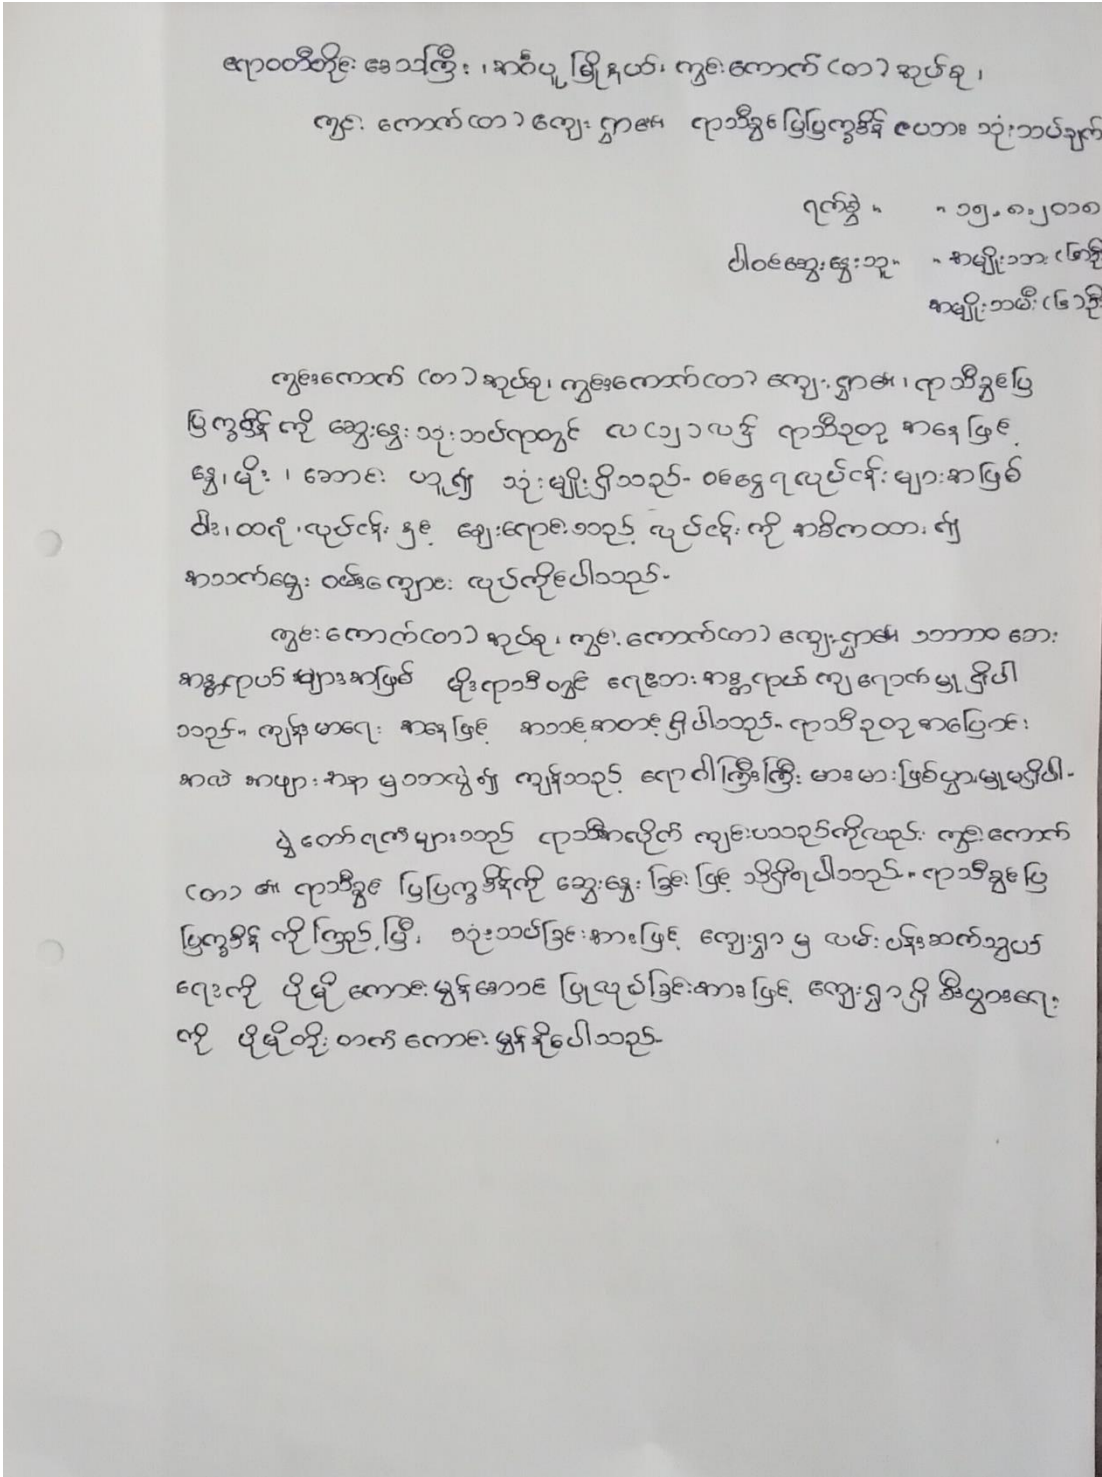 ဧရာဝတီတိုင်း ဒေသကြီး ၊ အင်္ဂပူ မြို့နယ်၊ ကွင်းကောက် (တ) အုပ်စု ၊
ကွင်း ကောက် (တ) ကျေး ရွာ၏ ရာသီခွင်ပြပြက္ခဒိန် ဇယား သုံးသပ်ချက်
ရက်စွဲ " " ၁၅.၈.၂၀၁၈
ပါဝင်ဆွေးနွေးသူ" " အမျိုးသား (၆)ဦး
အမျိုးသမီး (၆)ဦး
ကွင်းကောက် (တ) အုပ်စု၊ ကွင်းကောက်(တ) ကျေးရွာ၏၊ ရာသီခွင်ပြ
ပြက္ခဒိန် ကို ဆွေးနွေး သုံးသပ်ရာတွင် လ (၁၂) လ၌ ရာသီဥတု အနေဖြင့်
နွေ၊ မိုး ၊ ဆောင်း ဟူ၍ သုံးမျိုးရှိသည်- ဝင်ငွေရလုပ်ငန်း များအဖြစ်
ဝါး၊ ထရံ ၊ လုပ်ငန်း နှင့် ဈေးရောင်းသည့် လုပ်ငန်း ကို အဓိကထား ၍
အသက်မွေး ဝမ်းကျောင်း လုပ်ကိုင်ပါသည်-
ကွင်းကောက်(တ) အုပ်စု၊ ကွင်း ကောက်(တ) ကျေးရွာ၏ သဘာဝ ဘေး
အန္တရာယ် များအဖြစ် မိုးရာသီ တွင် ရေဘေး အန္တရာယ် ကျရောက်မှု ရှိပါ
သည်" ကျန်းမာရေး အနေဖြင့် အသင့်အတင့် ရှိပါသည်- ရာသီဥတု အပြောင်း
အလဲ အဖျား အနာ မှ သာလွဲ၍ ကျန်သည့် ရောဂါကြီးကြီး မားမား ဖြစ်ပွားမှု မရှိပါ-
ပွဲတော်ရက်များသည် ရာသီအလိုက် ကျင်းပသည်ကိုလည်း ကွင်းကောက်
(တ) ၏ ရာသီခွင် ပြပြက္ခဒိန်ကို ဆွေးနွေး ခြင်း ဖြင့် သိရှိရပါသည်- ရာသီခွင်ပြ
ပြက္ခဒိန် ကို ကြည့် ပြီး သုံးသပ်ခြင်းအားဖြင့် ကျေးရွာ မှ လမ်း ပန်းဆက်သွယ်
ရေးကို ပိုမို ကောင်းမွန်အောင် ပြုလုပ်ခြင်းအားဖြင့် ကျေးရွာရှိ စီးပွားရေး
ကို ပိုမိုတိုး တက် ကောင်း မွန်နိုင်ပေါသည်-